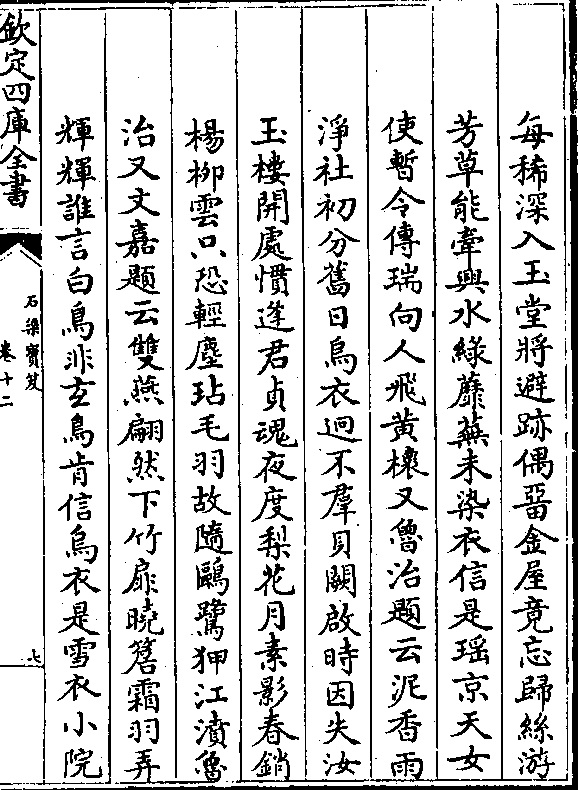 每稀深入玉堂將避跡偶畱金屋竟忘歸絲游
芳草能牽興水綠蘼蕪未染衣信是瑶京天女
使暫令傳瑞向人飛黄櫰又魯治題云泥香雨
淨社初分舊日烏衣迥不羣貝闕啟時因失汝
玉樓開處慣逢君貞魂夜度梨花月素影春銷
楊柳雲只恐輕塵玷毛羽故隨鷗鷺狎江濆魯
治又文嘉題云雙燕翩然下竹扉曉簷霜羽弄
輝輝誰言白鳥非玄鳥肯信烏衣是雪衣小院
欽定四庫全書
石渠寶笈
卷十二
七